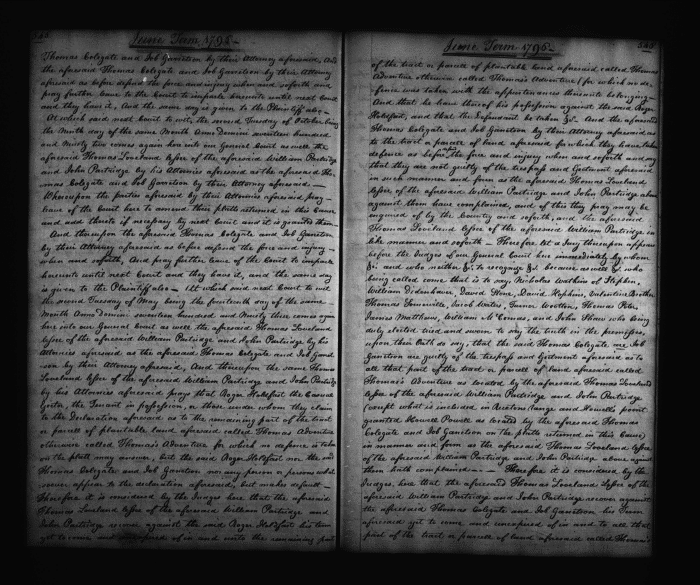 June Term 1795
Thomas Colegate and Job Garretson by their Attorney aforesaid, And
the aforesaid Thomas Colegate and Job Garretson by their Attorney
aforesaid as before defend the force and injury when and soforth and
pray further leave to the Court to imparle hereunto until next Court
and they have it, And the same day is given to the Plaintiff also.
At which said next Court to wit, the second Tuesday of October being
the Ninth day of the same Month Anno Domini seventeen hundred
and Ninety two comes again here into our General Court as well the
aforesaid Thomas Loveland Lessee of the aforesaid William Partridge
and John Partridge by his Attornies aforesaid as the aforesaid Tho-
mas Colegate and Job Garretson by their Attorney aforesaid.
Whereupon the parties aforesaid by their Attornies aforesaid pray
leave of the Court here to amend their plats returned in this Cause
and add thereto if necessary by next Court and it is granted them.
And thereupon the aforesaid Thomas Colegate and Job Garretson
by their Attorney aforesaid as before defend the force and injury
when and soforth, And pray further leave of the Court to imparle
hereunto until next Court and they have it, and the same day
is given to the Plaintiff also. At which said next Court to wit
the second Tuesday of May being the fourteenth day of the same
Month Anno Domini seventeen hundred and Ninety three comes again
here into our General Court as well the aforesaid Thomas Loveland
Lessee of the aforesaid William Partridge and John Partridge by his
Attornies aforesaid as the aforesaid Thomas Colegate and Job Garret-
son by their Attorney aforesaid, And thereupon the same Thomas
Loveland Lessee of the aforesaid William Partridge and John Partridge
by his Attornies aforesaid prays that Roger Holdfast the Casual
Ejector, the Tenant in possession, or those under whom they claim
to the Declaration aforesaid as to the remaining part of the tract
or parcel of plantable land aforesaid called Thomas Adventure
otherwise called Thomas's Adventure for which no defence is taken
on the platts may answer, but the said Roger Holdfast nor the said
Thomas Colegate and Job Garretson nor any person or persons whatsoever
appear to the declaration aforesaid, but makes default
Therefore it is considered by the Judges here that the aforesaid
Thomas Loveland Lessee of the aforesaid William Partridge and
John Partridge recover against the said Roger Holdfast his term
yet to come and unexpired of in and unto the remaining part
June Term 1795
of the tract or parcel of plantable land aforesaid called Thomas
Adventure otherwise called Thomas's Adventure for which no de-
fence was taken with the appurtenances thereunto belonging
And that he have thereof his possession against the said Roger
Holdfast, and that the Defendant be taken &c. And the aforesaid
Thomas Colegate and Job Garretson by their Attorney aforesaid as
to the tract or parcel of land aforesaid for which they have taken
defence as before, the force and injury when and soforth and say
that they are not guilty of the trespass and Ejectment aforesaid
in such manner and form as the aforesaid Thomas Loveland
Lessee of the aforesaid William Partridge and John Partridge above
against them have complained, and of this they pray may be
enquired of by the Country and soforth, and the aforesaid
Thomas Loveland Lessee of the aforesaid William Partridge in
like manner and soforth. Therefore let a Jury thereupon appear
before the Judges of our General Court here immediately by whom
&c. and who neither &c. to recognize &c. because as well &c. who
being called come that is to say, Nicholas Watkins of Stephen,
William Didenhauer, David Hone, David Hopkins, Valentine Brother
Thomas Sommerville, Jacob Waters, Turner Wootton, Thomas Pitts,
James Matthews, William McComas, and John Shaw who being
duly elected tried and sworn to say the truth in the premisses,
upon their Oath do say, that the said Thomas Colegate and Job
Garretson are guilty of the trespass and Ejectment aforesaid as to
all that part of the tract or parcel of land aforesaid called
Thomas's Adventure as located by the aforesaid Thomas Loveland
Lessee of the aforesaid William Partridge and John Partridge
(except what is included in Beetons Range and Howells point
granted Howell Powell as located by the aforesaid Thomas
Colegate and Job Garretson on the platts returned in this Cause)
in manner and form as the aforesaid Thomas Loveland Lessee
of the aforesaid William Partridge and John Partridge above against
them hath complained. Therefore it is considered by the
Judges here that the aforesaid Thomas Loveland Lessee of the
aforesaid William Partridge and John Partridge recover against
the aforesaid Thomas Colegate and Job Garretson his term
aforesaid yet to come and unexpired of in and to all that
part of the tract or parcel of land aforesaid called Thomas's